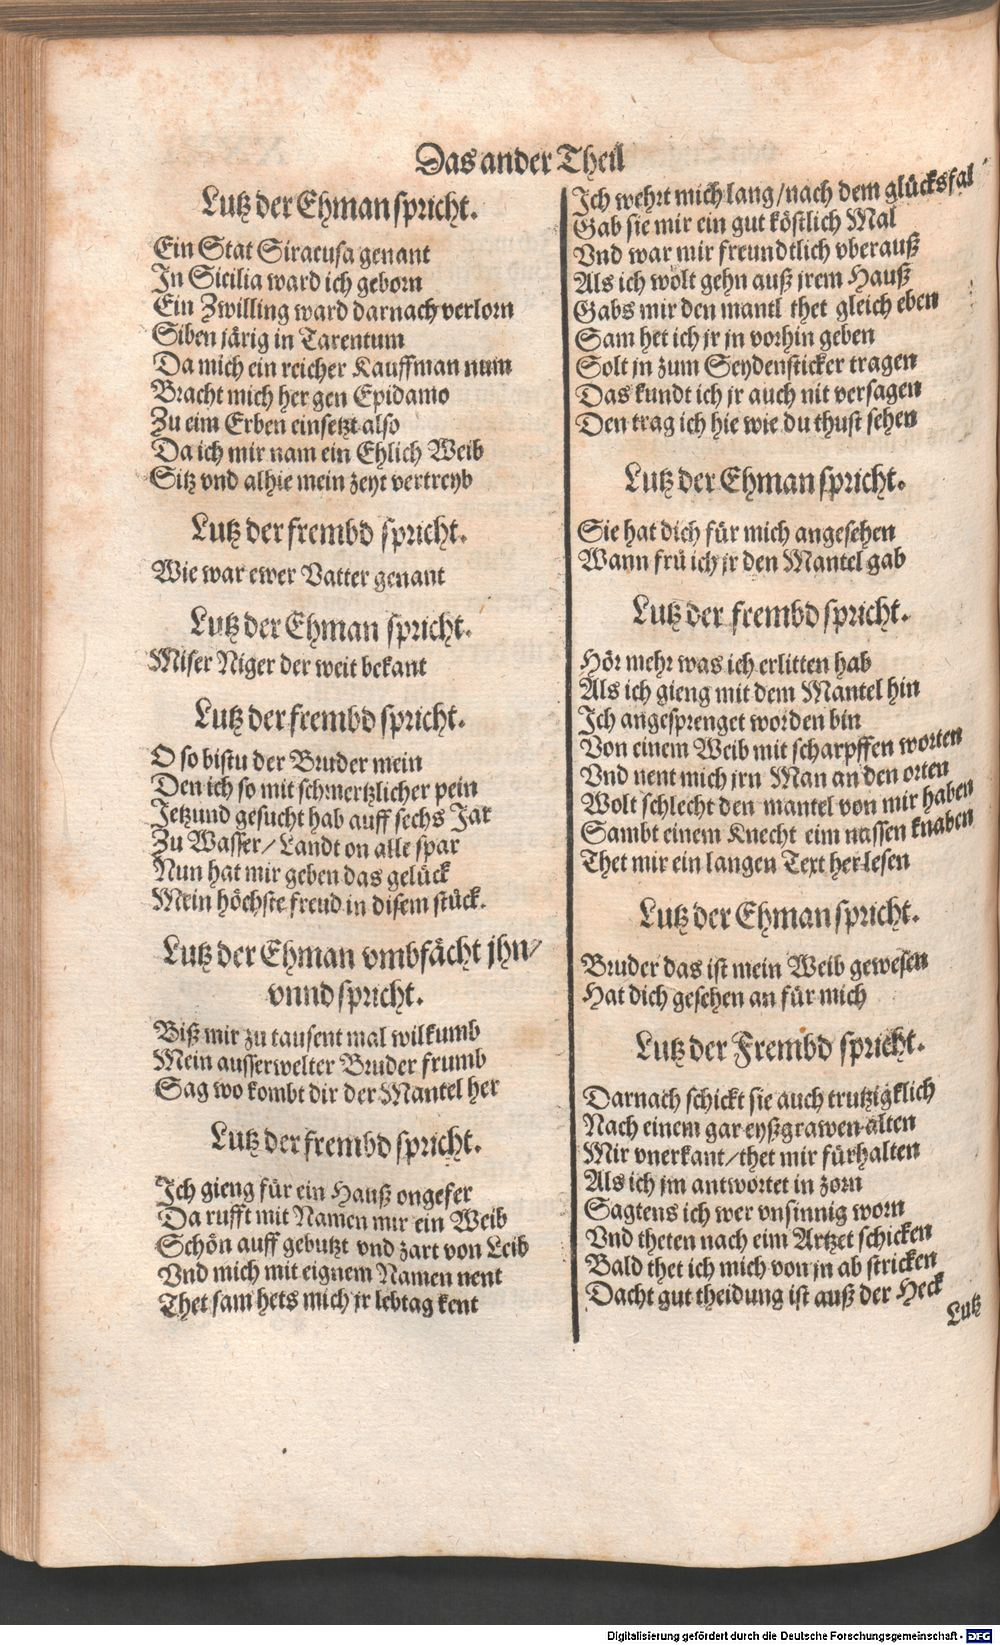 Das ander Theil
Lutz der Ehman spricht.
Ein Stat Siracusa genant
In Sicilia ward ich geborn
Ein Zwilling ward darnach verlorn
Siben järig in Tarentum
Da mich ein reicher Kauffman num
Bracht mich her gen Epidamo
Zu eim Erben einsetzt also
Da ich mir nam ein Ehlich Weib
Sitz vnd alhie mein zeyt vertreyb
Lutz der frembd spricht.
Wie war ewer Vatter genant
Lutz der Ehman spricht.
Miser Niger der weit bekant
Lutz der frembd spricht.
O so bistu der Bruder mein
Den ich so mit schmertzlicher pein
Jetzund gesucht hab auff sechs Jar
Zu Wasser/ Landt on alle spar
Nun hat mir geben das gelück
Mein höchste freud in disem stück.
Lutz der Ehman vmbfächt jhn/
vnnd spricht.
Biß mir zu tausent mal wilkumb
Mein ausserwelter Bruder frumb
Sag wo kombt dir der Mantel her
Lutz der frembd spricht.
Ich gieng für ein Hauß ongefer
Da rufft mit Namen mir ein Weib
Schön auff gebutzt vnd zart von Leib
Vnd mich mit eignem Namen nent
Thet sam hets mich jr lebtag kent
Ich wehrt mich lang/nach dem glücksfal
Gab sie mir ein gut köstlich Mal
Vnd war mir freundtlich vberauß
Als ich wolt gehn auß jrem Hauß
Gabs mir den mantl thet gleich eben
Sam het ich jr jn vorhin geben
Solt jn zum Seydensticker tragen
Das kundt ich jr auch nit versagen
Den trag ich hie wie du thust sehen
Lutz der Ehman spricht.
Sie hat dich für mich angesehen
Wann frü ich jr den Mantel gab
Lutz der frembd spricht.
Hör mehr was ich erlitten hab
Als ich gieng mit dem Mantel hin
Ich angesprenget worden bin
Von einem Weib mit scharpffen worten
Vnd nent mich jrn Man an den orten
Wolt schlecht den mantel von mir haben
Sambt einem Knecht eim nassen knaben
Thet mir ein langen Text her lesen
Lutz der Ehman spricht.
Bruder das ist mein Weib gewesen
Hat dich gesehen an für mich
Lutz der Frembd spricht.
Darnach schickt sie auch trutzigklich
Nach einem gar eyßgrawen alten
Mir vnerkant/thet mir fürhalten
Als ich jm antwortet in zorn
Sagtens ich wer vnsinnig worn
Vnd theten nach eim Artzet schicken
Bald thet ich mich von jn ab stricken
Dacht gut theidung ist auß der Heck
Lutz
Digitalisierung gefördert durch die Deutsche Forschungsgemeinschaft - DFG